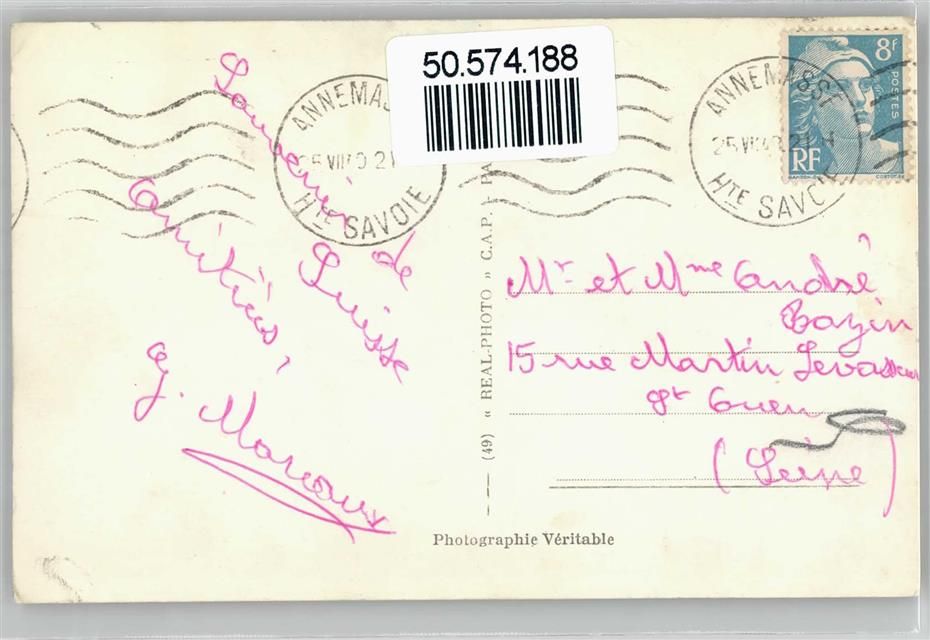 50.574.188
Souvenir
de
Suisse
Amitiés,
G. Marcoux
ANNEMASSE
25 VII 49 21
HTE SAVOIE
ANNEMASSE
HTE SAVOIE
8F
POSTES
RF
Mr et Mme André
Bazin
15 rue Martin Levasseur
St Ouen
(Seine)
(49) « REAL-PHOTO » C.A.P.
Photographie Véritable